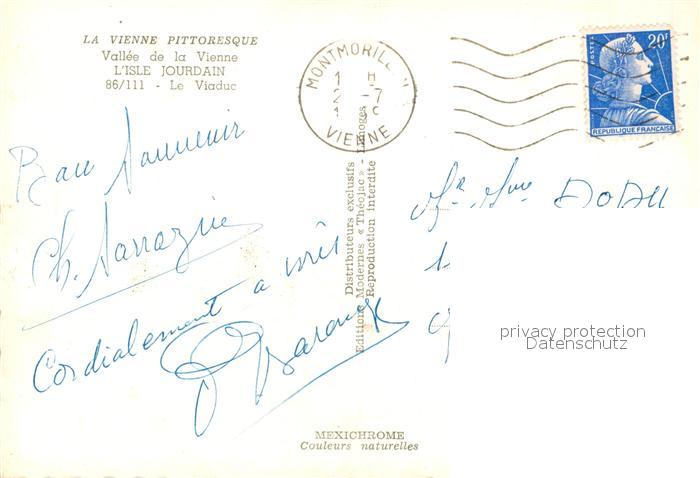 LA VIENNE PITTORESQUE
Vallée de la Vienne
L'ISLE JOURDAIN
86/111 - Le Viaduc
MONTMORILL
1 H
2 -7
VIENNE
POSTES
20F
REPUBLIQUE FRANÇAISE
Bon Souvenir
Ch. Sarrazin
Cordialement à vous
Distributeurs exclusifs
Editions Modernes « Théojac » - Limoges
Reproduction interdite
Mr Mme DODU
privacy protection
Datenschutz
MEXICHROME
Couleurs naturelles